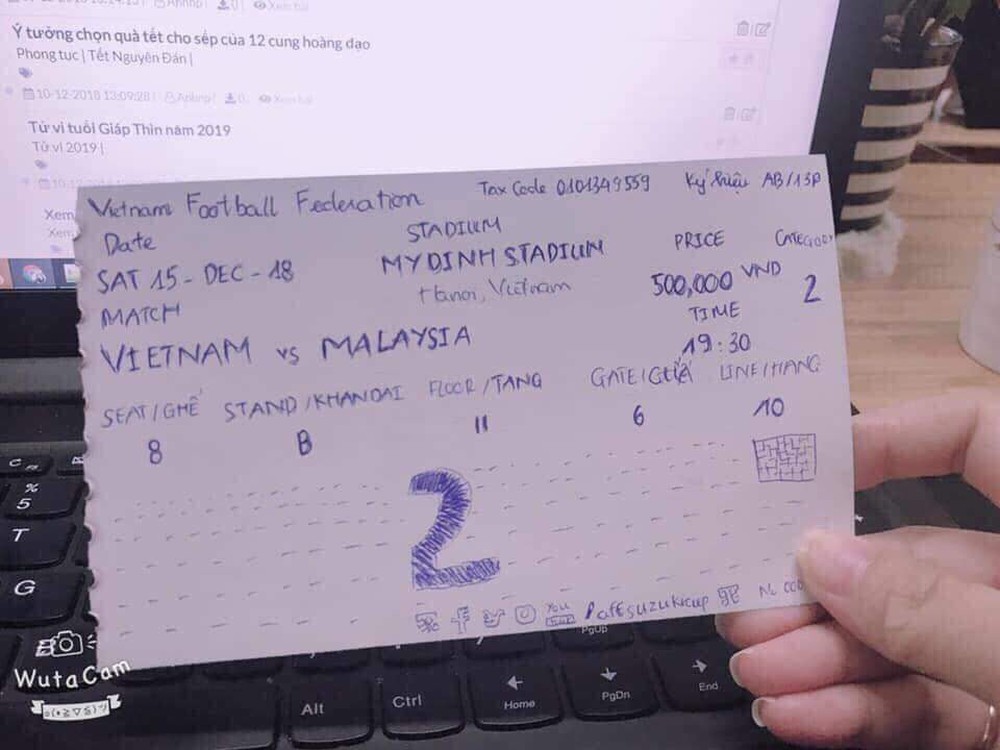 Xem bài
Ý tưởng chọn quà tết cho sếp của 12 cung hoàng đạo
Phong tục | Tết Nguyên Đán |
10-12-2018 13:09:28 | Anhnp | 0 Xem bài
Tử vi tuổi Giáp Thìn năm 2019
Tử vi 2019 |
Xem
Xem
Vietnam Football Federation Tax Code 0101349559 Ký hiệu AB/13P
Date STADIUM PRICE CATEGORY
SAT 15 - DEC - 18 MY DINH STADIUM 500,000 VND 2
MATCH Hanoi, Vietnam TIME
VIETNAM vs MALAYSIA 19:30
SEAT/GHẾ STAND/KHANDAI FLOOR/TANG GATE/CỬA LINE/HANG
8 B II 6 10
2
f You Tube /affsuzukicup No 000
C
%
5
T
G
Alt Ctrl Home PgUp PgDn End
WutaCam